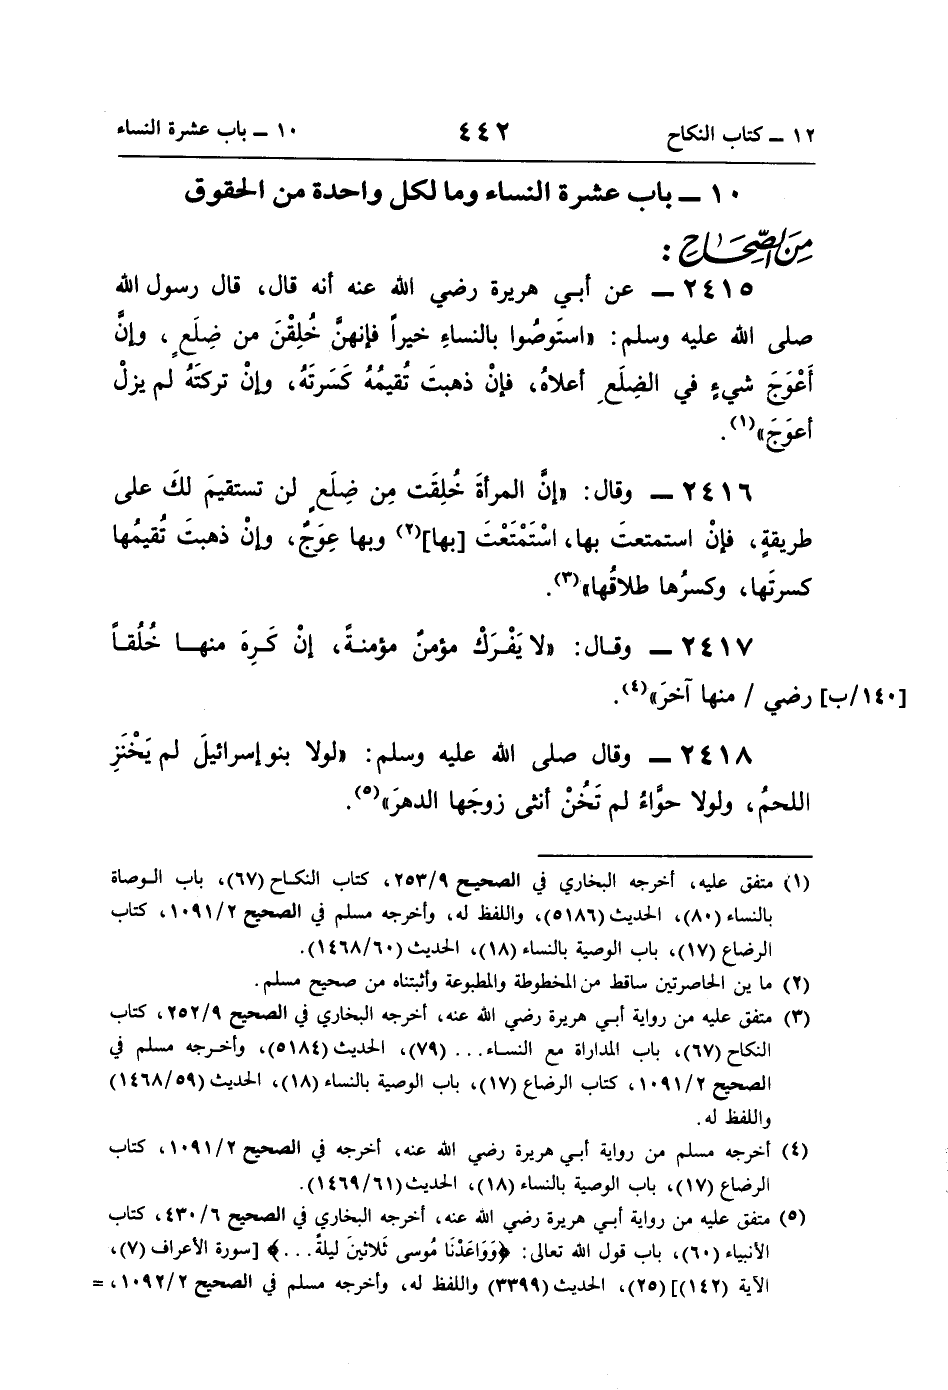 ١٢ ــ كتاب النكاح ٤٤٢ ١٠ ــ باب عشرة النساء
١٠ ــ باب عشرة النساء وما لكل واحدة من الحقوق
مِنَ الصِّحَاحِ :
٢٤١٥ ــ عن أبي هريرة رضي الله عنه أنه قال، قال رسول الله
صلى الله عليه وسلم: «استَوصُوا بالنساءِ خيراً فإنهنَّ خُلِقْنَ من ضِلَعٍ، وإنَّ
أَعْوَجَ شيءٍ في الضِلَعِ أعلاهُ، فإنْ ذهبتَ تُقيمُهُ كَسَرتَهُ، وإنْ تركتَهُ لم يزلْ
أعوَجَ»(١).
٢٤١٦ ــ وقال: «إنَّ المرأةَ خُلِقَت مِن ضِلَعٍ لن تستقيمَ لكَ على
طريقةٍ، فإنْ استمتعتَ بها، اسْتَمْتَعْتَ [بها](٢) وبها عِوَجٌ، وإنْ ذهبتَ تُقيمُها
كسرتَها، وكسرُها طلاقُها»(٣).
٢٤١٧ ــ وقال: «لا يَفْرَكْ مؤمنٌ مؤمنةً، إنْ كَرِهَ منها خُلُقاً
[١٤٠/ب] رضي / منها آخرَ»(٤).
٢٤١٨ ــ وقال صلى الله عليه وسلم: «لولا بنو إسرائيلَ لم يَخْنَزِ
اللحمُ، ولولا حوَّاءُ لم تَخُنْ أنثى زوجَها الدهرَ»(٥).
(١) متفق عليه، أخرجه البخاري في الصحيح ٢٥٣/٩، كتاب النكاح (٦٧)، باب الوصاة
بالنساء (٨٠)، الحديث (٥١٨٦)، واللفظ له، وأخرجه مسلم في الصحيح ١٠٩١/٢، كتاب
الرضاع (١٧)، باب الوصية بالنساء (١٨)، الحديث (١٤٦٨/٦٠).
(٢) ما بين الحاصرتين ساقط من المخطوطة والمطبوعة وأثبتناه من صحيح مسلم.
(٣) متفق عليه من رواية أبي هريرة رضي الله عنه، أخرجه البخاري في الصحيح ٢٥٢/٩، كتاب
النكاح (٦٧)، باب المداراة مع النساء... (٧٩)، الحديث (٥١٨٤)، وأخرجه مسلم في
الصحيح ١٠٩١/٢، كتاب الرضاع (١٧)، باب الوصية بالنساء (١٨)، الحديث (١٤٦٨/٥٩)
واللفظ له.
(٤) أخرجه مسلم من رواية أبي هريرة رضي الله عنه، أخرجه في الصحيح ١٠٩١/٢، كتاب
الرضاع (١٧)، باب الوصية بالنساء (١٨)، الحديث (١٤٦٩/٦١).
(٥) متفق عليه من رواية أبي هريرة رضي الله عنه، أخرجه البخاري في الصحيح ٤٣٠/٦، كتاب
الأنبياء (٦٠)، باب قول الله تعالى: ﴿وَوَاعَدْنَا مُوسى ثَلاثينَ ليلةً...﴾ [سورة الأعراف (٧)،
الآية (١٤٢)] (٢٥)، الحديث (٣٣٩٩) واللفظ له، وأخرجه مسلم في الصحيح ١٠٩٢/٢، =